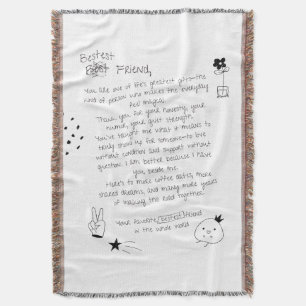 Bestest
Best Friend,
You are one of life's greatest gifts—the
kind of person who makes the everyday
feel magical.
Thank you for your honesty, your
humor, your quiet strength.
You've taught me what it means to
truly show up for someone—to love
without condition and support without
question. I am better because I have
you beside me.
Here's to more coffee dates, more
shared dreams, and many more years
of walking this road together.
Your favorite (Bestest) Friend
in the whole world